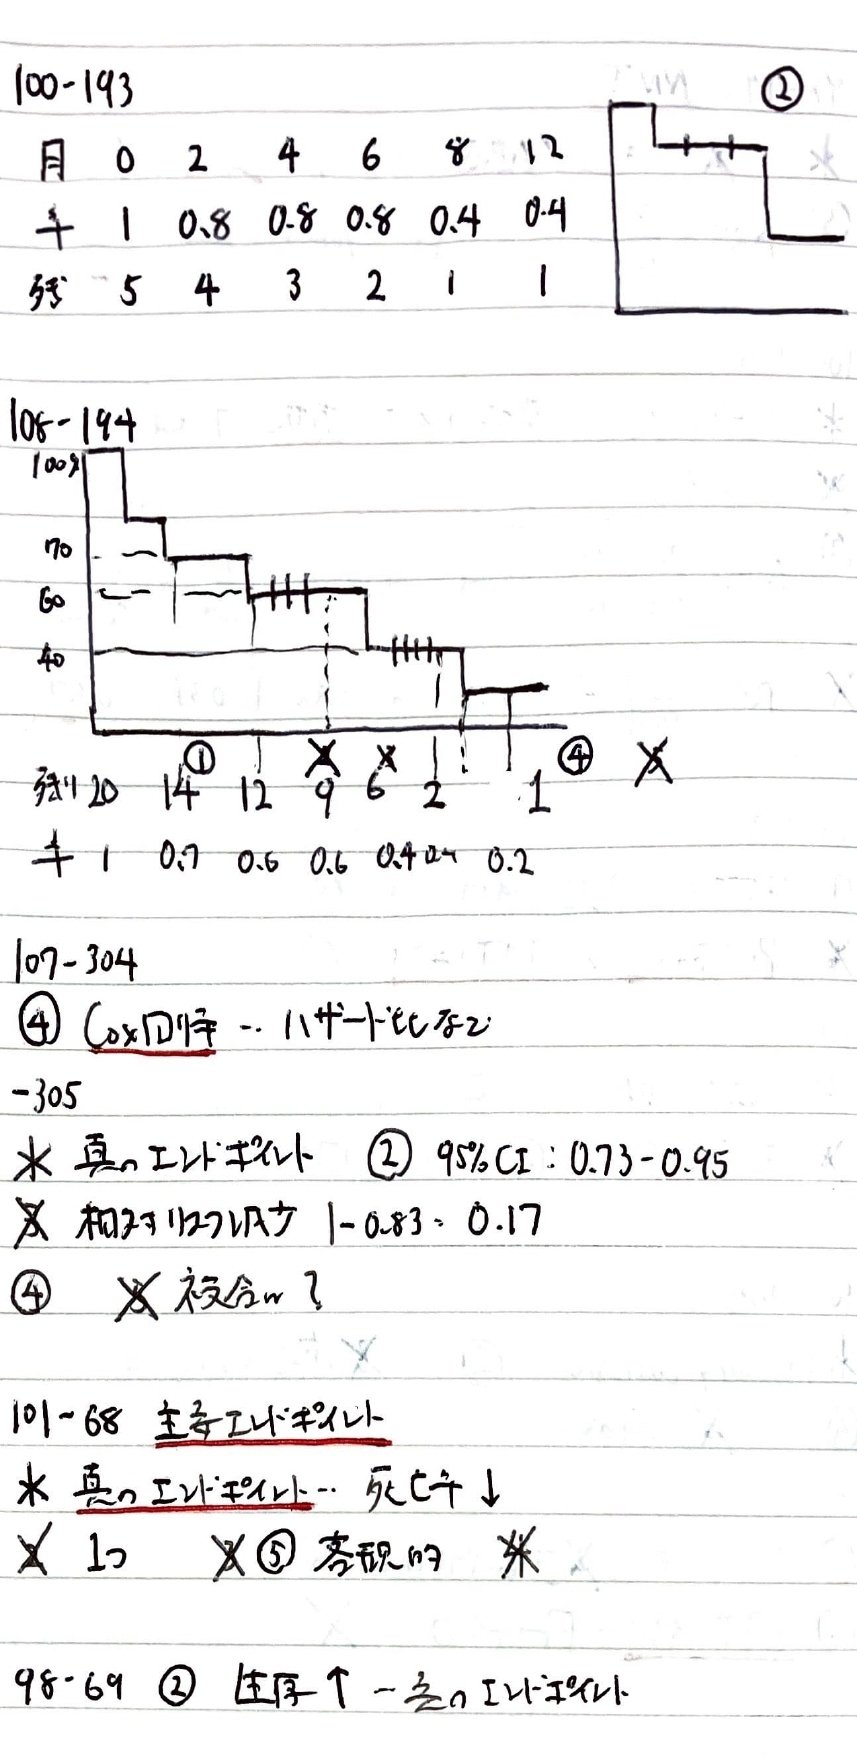 100-193 ②
月 0 2 4 6 8 12
1 0.8 0.8 0.8 0.4 0.4
残 5 4 3 2 1 1
108-194
100%
70
60
40
① ④
残り 20 14 12 9 6 2 1
1 0.7 0.6 0.6 0.4 0.4 0.2
107-304
④ Cox回帰 … ハザード比など
-305
真のエンドポイント ② 95%CI : 0.73-0.95
相対リスク減少 1-0.83 = 0.17
④ 複合 ?
101-68 主要エンドポイント
真のエンドポイント … 死亡率↓
1つ ⑤ 客観的
98-69 ② 生存↑ - 真のエンドポイント